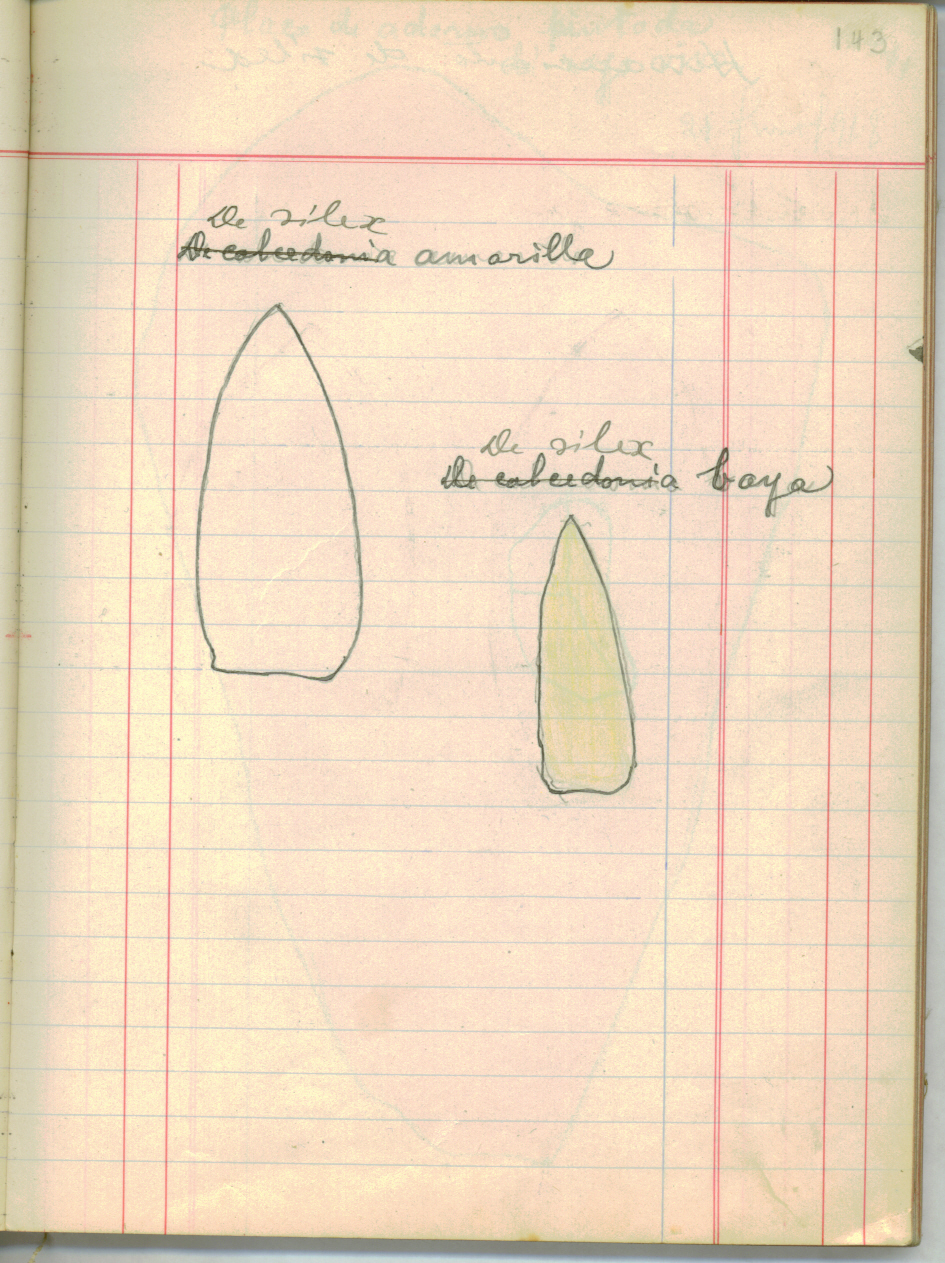 143
De silex
De calcedonia amarilla
De silex
De calcedonia baya